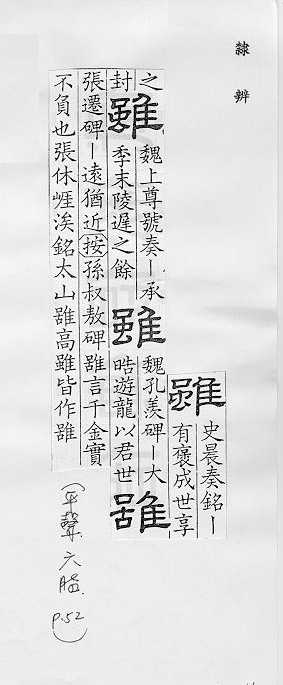 隸辨
雖 史晨奏銘ー
有褒成世享
之
封
雖 魏上尊號奏ー承
季末陵遲之餘
雖 魏孔羨碑ー大
晧遊龍以君世
雖
張遷碑ー遠猶近按孫叔敖碑雖言千金實
不負也張休崕涘銘太山雖高雖皆作雖
(平聲六脂 p.52)